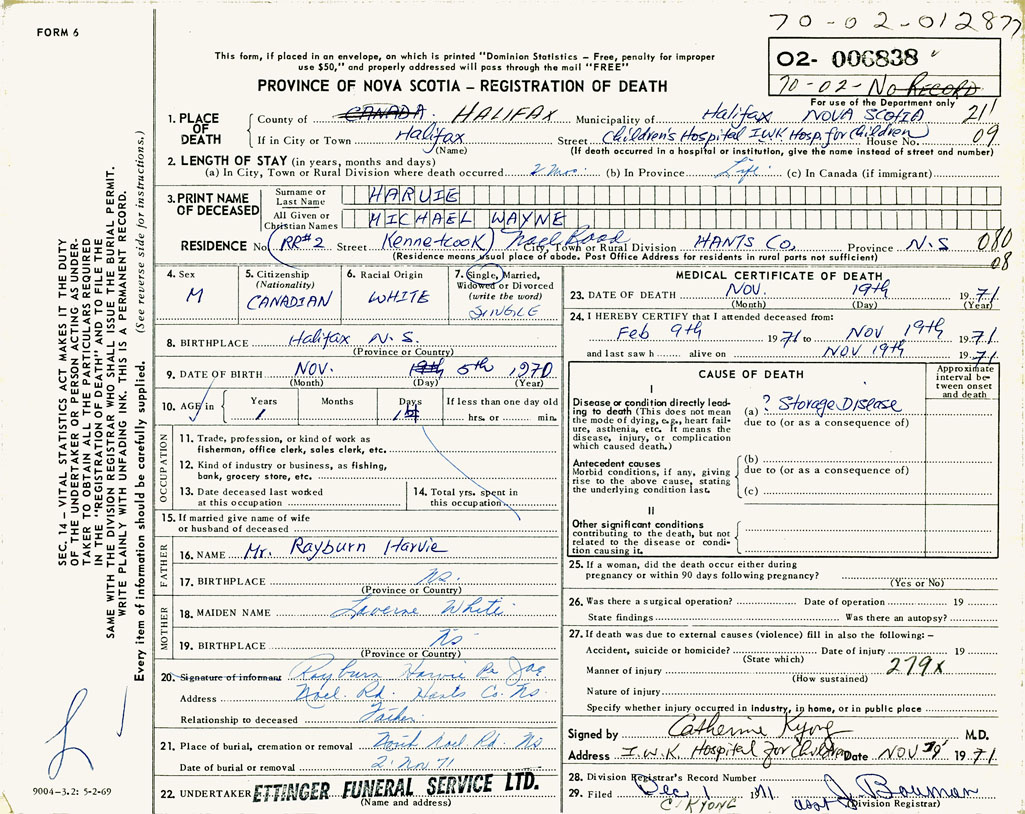 70-02-012877
FORM 6
O2- 006838
70-02-NO RECORD
This form, if placed in an envelope, on which is printed "Dominion Statistics – Free, penalty for improper
use $50," and properly addressed will pass through the mail "FREE"
PROVINCE OF NOVA SCOTIA – REGISTRATION OF DEATH
For use of the Department only
1. PLACE OF DEATH County of CANADA HALIFAX Municipality of Halifax NOVA SCOTIA 211
If in City or Town Halifax Street Children's Hospital IWK Hosp. for Children House No. 09
(Name) (If death occurred in a hospital or institution, give the name instead of street and number)
2. LENGTH OF STAY (in years, months and days)
(a) In City, Town or Rural Division where death occurred 2 mos. (b) In Province Life (c) In Canada (if immigrant)
3. PRINT NAME OF DECEASED
Surname or Last Name HARVIE
All Given or Christian Names MICHAEL WAYNE
RESIDENCE No. RR#2 Street Kennetcook Noel Road City, Town or Rural Division HANTS Co. Province N.S 080
(Residence means usual place of abode. Post Office Address for residents in rural parts not sufficient) 08
4. Sex
M
5. Citizenship
(Nationality)
CANADIAN
6. Racial Origin
WHITE
7. Single, Married,
Widowed or Divorced
(write the word)
SINGLE
8. BIRTHPLACE Halifax N.S.
(Province or Country)
9. DATE OF BIRTH NOV. 5th 1970
(Month) (Day) (Year)
10. AGE in Years Months Days If less than one day old
1 14 hrs. or min.
OCCUPATION
11. Trade, profession, or kind of work as
fisherman, office clerk, sales clerk, etc.
12. Kind of industry or business, as fishing,
bank, grocery store, etc.
13. Date deceased last worked
at this occupation
14. Total yrs. spent in
this occupation
15. If married give name of wife
or husband of deceased
FATHER
16. NAME Mr. Rayburn Harvie
17. BIRTHPLACE NS.
(Province or Country)
MOTHER
18. MAIDEN NAME Laverne White
19. BIRTHPLACE NS
(Province or Country)
20. Signature of informant Rayburn Harvie
Address Noel Rd. Hants Co. NS.
Relationship to deceased Father
21. Place of burial, cremation or removal Noel Rd NS
Date of burial or removal 2 Nov 71
22. UNDERTAKER ETTINGER FUNERAL SERVICE LTD.
(Name and address)
MEDICAL CERTIFICATE OF DEATH
23. DATE OF DEATH NOV. 19th 1971
(Month) (Day)
24. I HEREBY CERTIFY that I attended deceased from:
Feb 9th 1971 to NOV 19th 1971
and last saw h alive on NOV 19th 1971
CAUSE OF DEATH
Approximate
interval be-
tween onset
and death
I
Disease or condition directly lead-
ing to death (This does not mean
the mode of dying, e.g., heart fail-
ure, asthenia, etc. It means the
disease, injury, or complication
which caused death.)
(a) ? Storage Disease
due to (or as a consequence of)
Antecedent causes
Morbid conditions, if any, giving
rise to the above cause, stating
the underlying condition last.
(b)
due to (or as a consequence of)
(c)
II
Other significant conditions
contributing to the death, but not
related to the disease or condi-
tion causing it.
25. If a woman, did the death occur either during
pregnancy or within 90 days following pregnancy?
(Yes or No)
26. Was there a surgical operation? Date of operation 19
State findings Was there an autopsy?
27. If death was due to external causes (violence) fill in also the following: –
Accident, suicide or homicide? Date of injury 19
(State which)
Manner of injury 279X
(How sustained)
Nature of injury
Specify whether injury occurred in industry, in home, or in public place
Signed by Catherine Kyong M.D.
Address I.W.K. Hospital for Children Date NOV 19 1971
28. Division Registrar's Record Number
29. Filed Dec 1 1971 asst J. Bauman
C. KYONG Division Registrar)
SEC. 14 – VITAL STATISTICS ACT MAKES IT THE DUTY
OF THE UNDERTAKER OR PERSON ACTING AS UNDER-
TAKER TO OBTAIN ALL THE PARTICULARS REQUIRED
IN THE "REGISTRATION OF DEATH" AND TO FILE THE
SAME WITH THE DIVISION REGISTRAR WHO SHALL ISSUE THE BURIAL PERMIT.
WRITE PLAINLY WITH UNFADING INK. THIS IS A PERMANENT RECORD.
Every item of information should be carefully supplied. (See reverse side for instructions.)
9004-3.2: 5-2-69